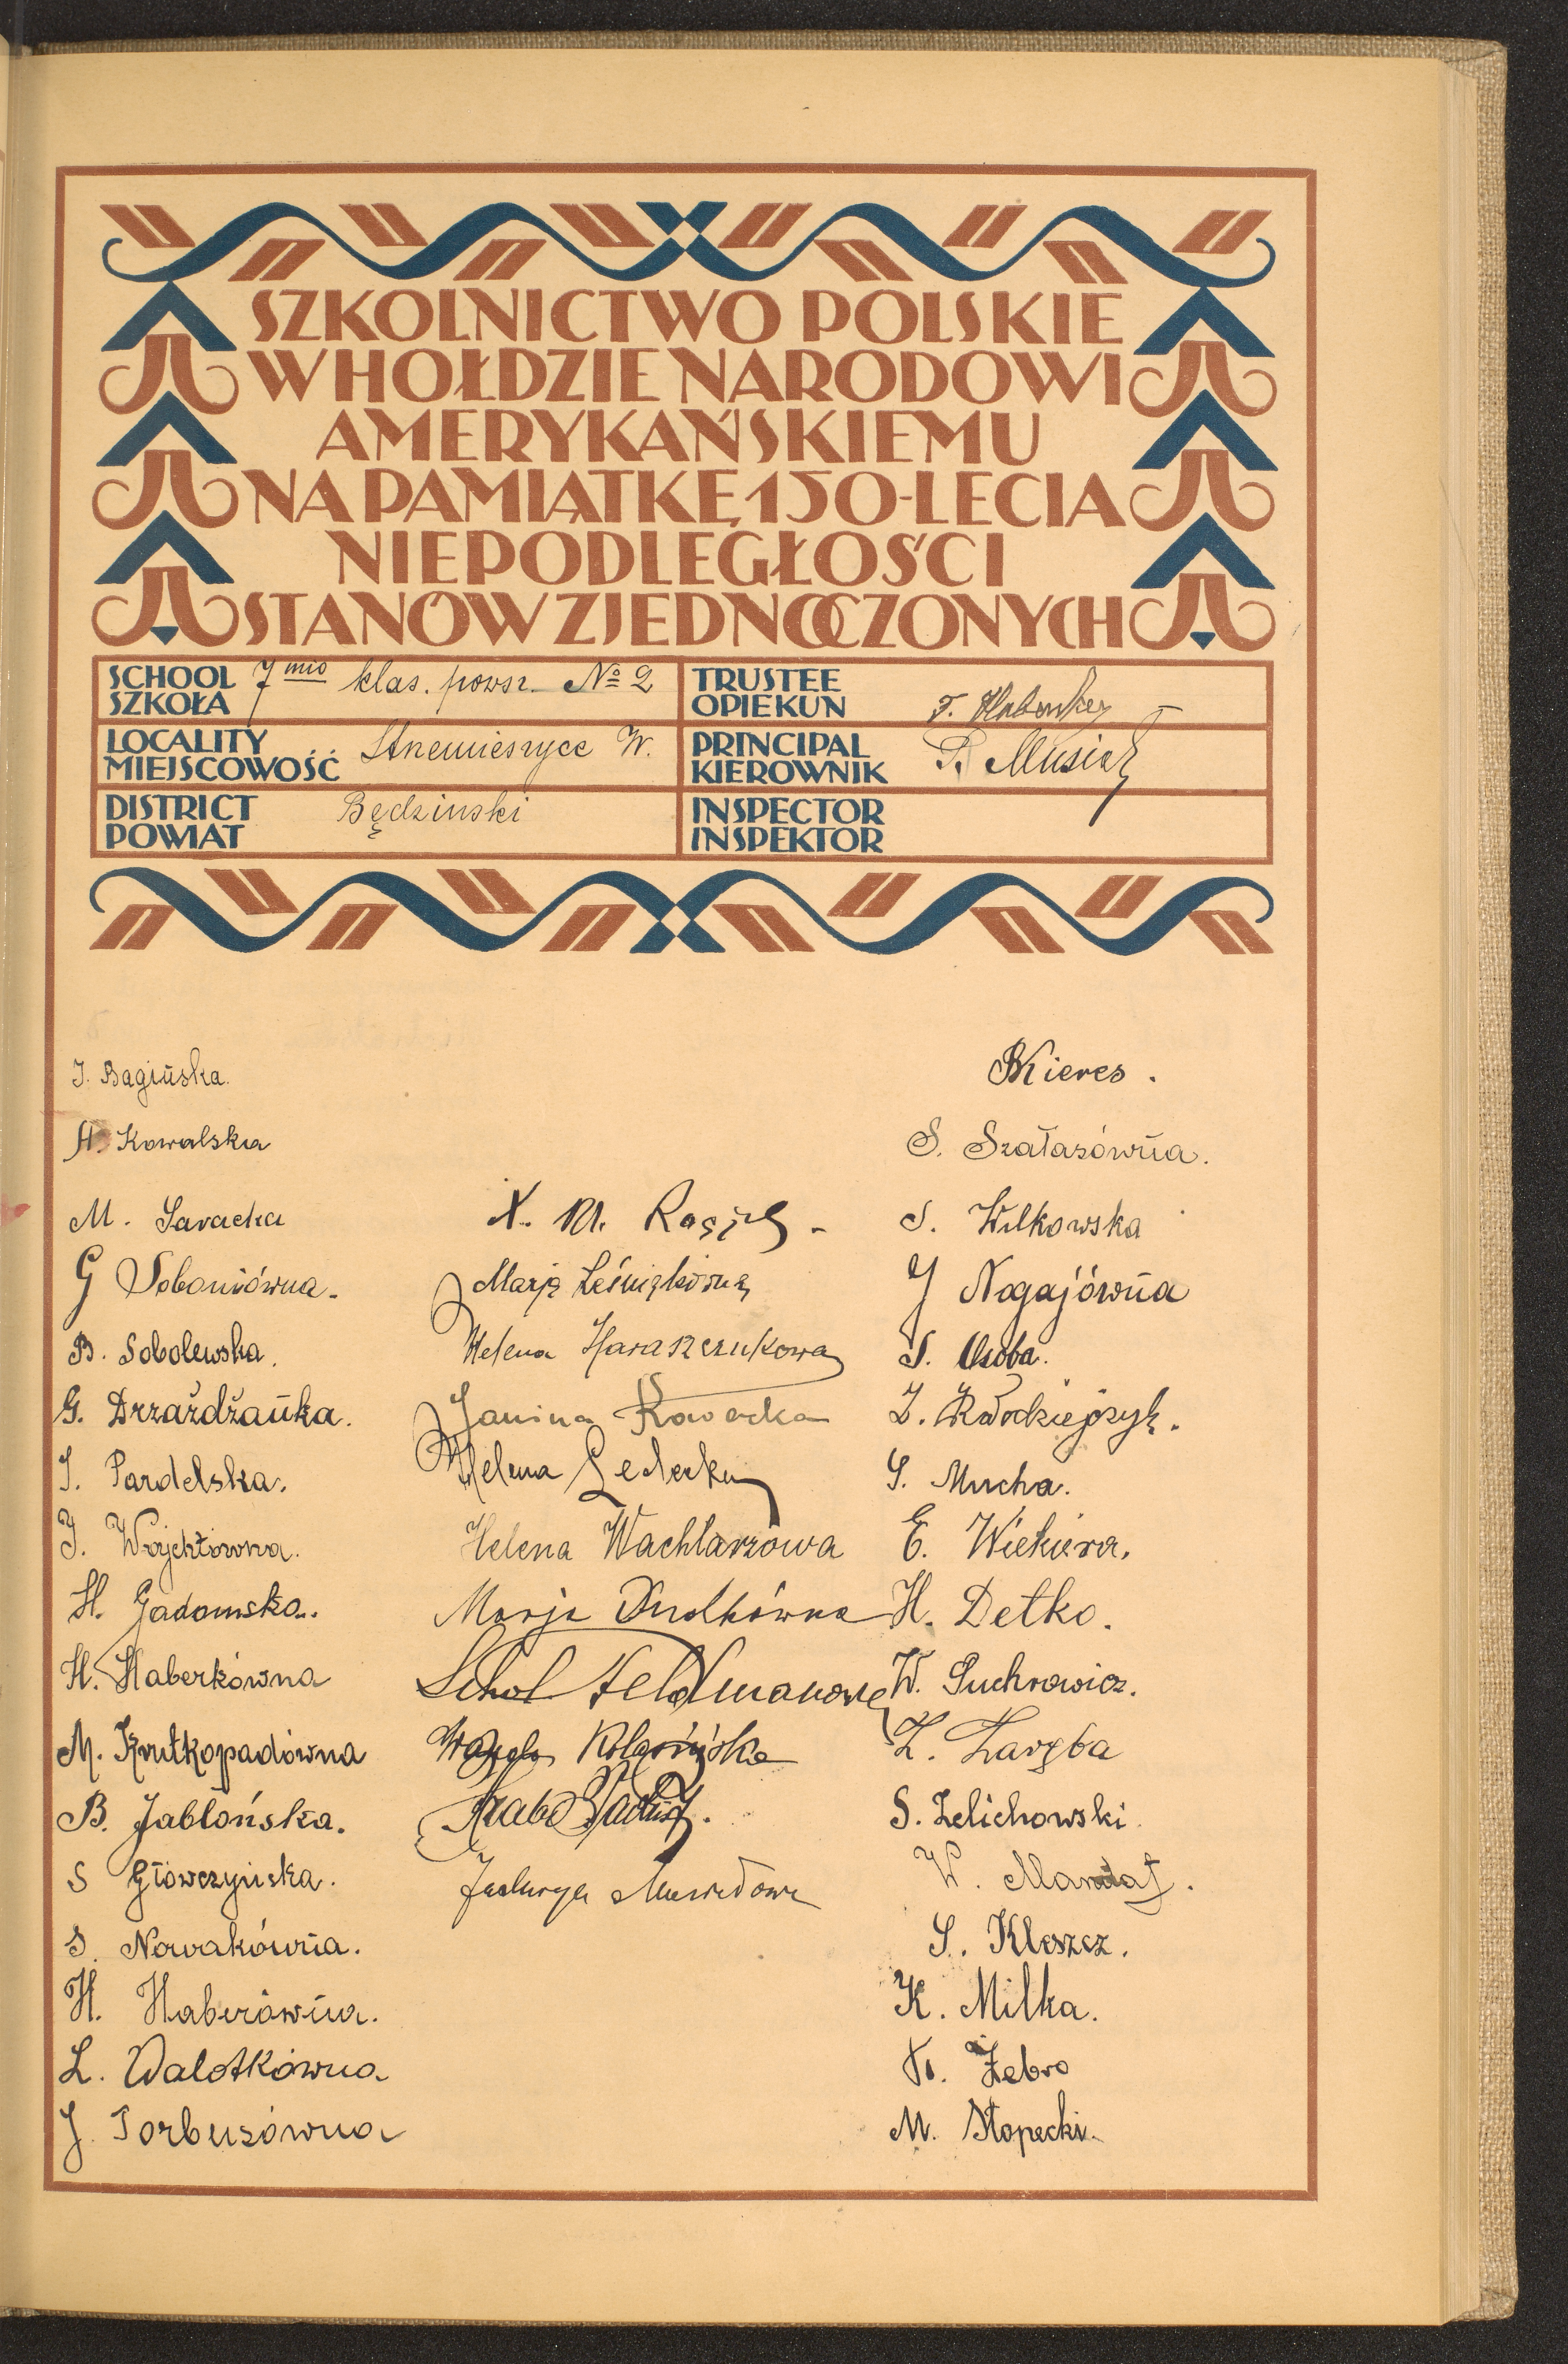 SZKOLNICTWO POLSKIE
W HOŁDZIE NARODOWI
AMERYKAŃSKIEMU
NA PAMIĄTKĘ 150-LECIA
NIEPODLEGŁOŚCI
STANÓW ZJEDNOCZONYCH
SCHOOL
SZKOŁA
7mio klas. powsz. № 2
TRUSTEE
OPIEKUN
LOCALITY
MIEJSCOWOŚĆ
Strzemieszyce W.
PRINCIPAL
KIEROWNIK
P. Musiał
DISTRICT
POWIAT
Będzinski
INSPECTOR
INSPEKTOR
J. Bagińska.
A. Kowalska
M. Saracka
G Soboniówna.
B. Sobolewska.
G. Drzażdżańka.
J. Pardelska.
J. Wojcktówna.
H. Gadomska.
H. Haberkówna
M. Krutkopadówna
B. Jabłońska.
S Główczyńska.
S. Nowakówna.
H. Haberówna.
L. Walotkówna
J. Torbusówna
X. M.
Marja Leśniakówna
Helena Haraszczukowa
Janina Kowacka
Helena
Helena Wachlarzowa
Marja Dudkówna
Feldmanowa
Wanda Kolasińska
Jadwiga Musiałowa
Kieres.
S. Szałasówna.
S. Wilkowska
J Nogajówna
S. Osoba.
Z. Kołodziejczyk.
S. Mucha.
E. Wiekiera.
H. Detko.
W. Suchrowicz.
Z. Zaręba
S. Zelichowski.
W. Mandat.
S. Kleszcz.
K. Milka.
Żebro
M. Słopecki.